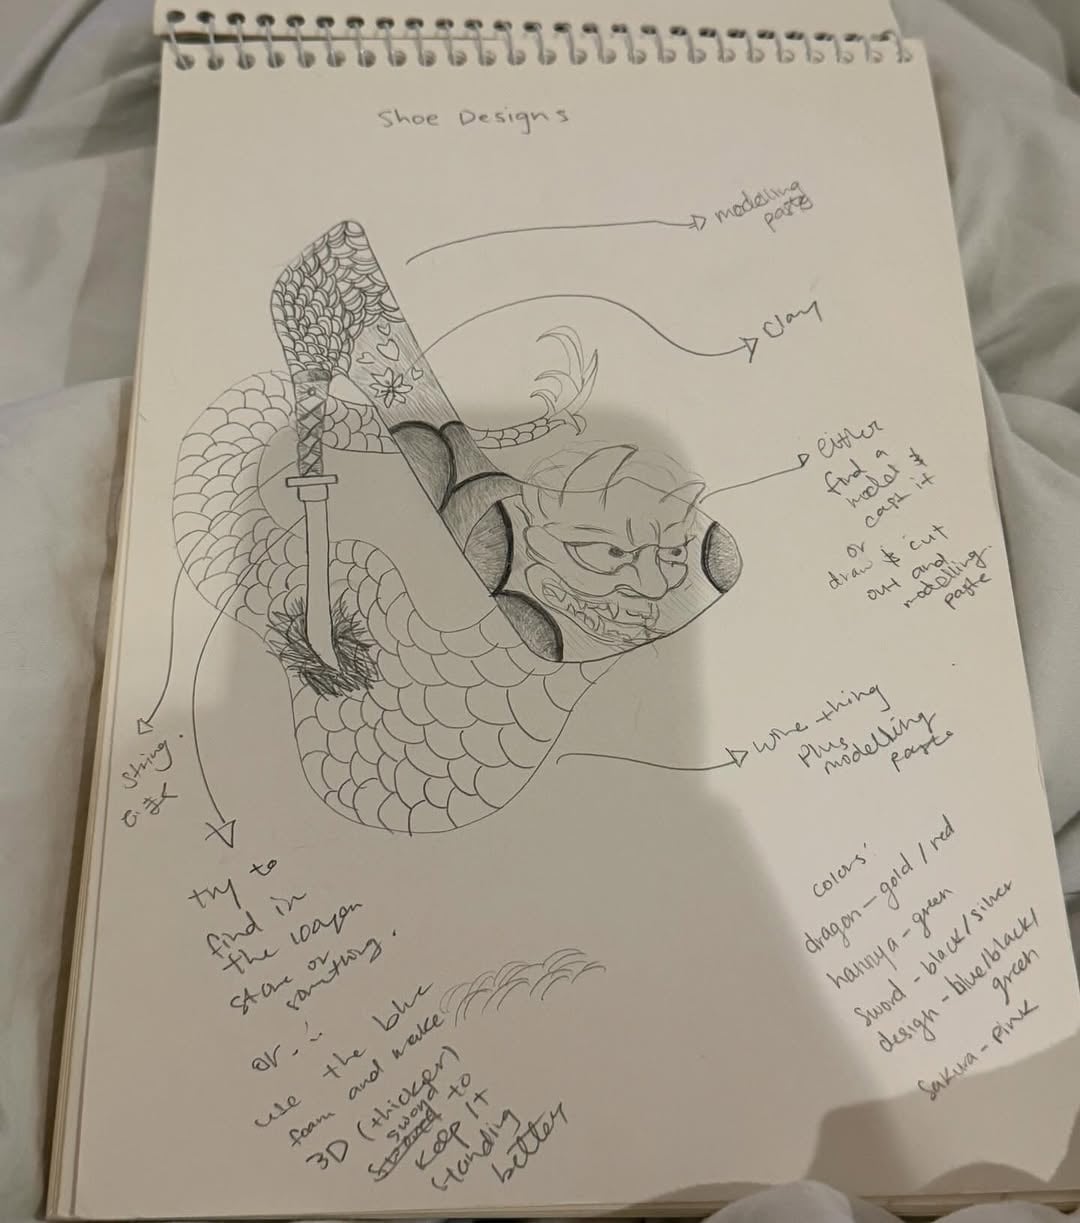 Shoe Designs
modelling
paste
Clay
either
find a
model &
cast it
or
draw & cut
out and
modelling
paste
wire thing
plus
modelling
paste
string
try to
find in
the 100yen
store or
something.
or...
use the blue
foam and make
3D (thicker)
sword to
keep it
standing
better
colors:
dragon - gold / red
hannya - green
sword - black / silver
design - blue/black/
green
Sakura - pink